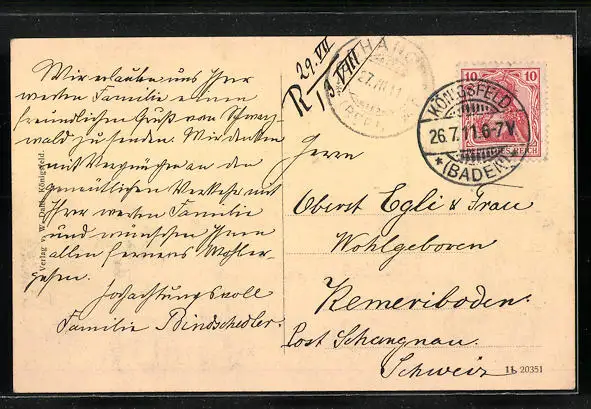 Wir erlauben uns Ihrer
werten Familie einen
freundlichen Gruß vom Schwarz-
wald zu senden. Wir denken
mit Vergnügen an den
gemütlichen Verkehr mit
Ihrer werten Familie
und wünschen Ihnen
allen ferneres Wohler-
gehen.
Hochachtungsvoll
Familie Bindschedler.
Verlag v. W. Dahl, Königsfeld.
29. VII
R 13 VIII
27.VII.11
(BERN)
10 10
KÖNIGSFELD
26.7.11.6-7V.
* (BADEN)
Herrn
Oberst Egli & Frau
Wohlgeboren
Kemeriboden.
Post Schangnau.
Schweiz
11. 20351